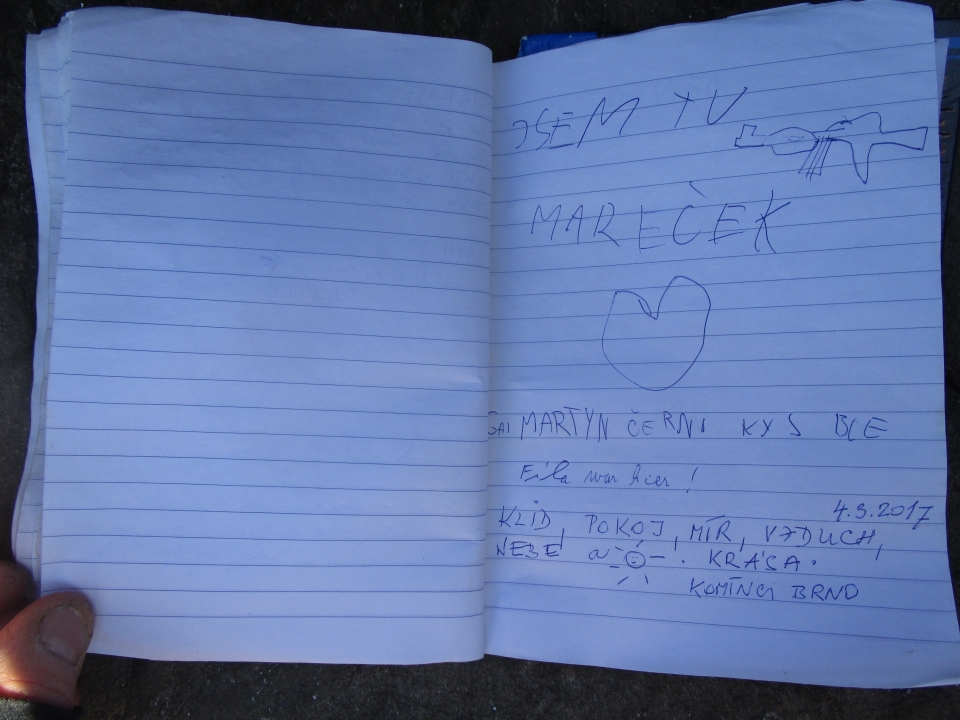 JSEM TU
MAREČEK
MARTYN ČERNI KYS BLE
Eila war hier!
4.3.2017
KLID, POKOJ, MÍR, VZDUCH,
NEBE a . KRÁSA.
KOMÍNCI BRNO